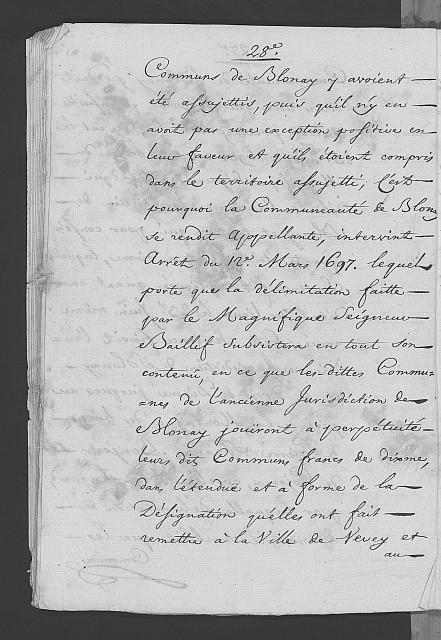 28e.
Communs de Blonay y avoient
été assujettis, puis qu'il n'y en
avoit pas une exception positive en
leur faveur et qu'ils étoient compris
dans le territoire assujetti, c'est
pourquoi la Communeauté de Blonay
se rendit Appellante, intervint
Arrêt du 12e. Mars 1697. lequel
porte que la délimitation faitte
par le Magnifique Seigneur
Baillif Subsistera en tout son
contenu, en ce que les dittes Commu-
=nes de l'ancienne Jurisdiction de
Blonay jouiront à perpétuité
leurs dits Communs francs de dixme,
dans l'étendue et à forme de la
Désignation qu'elles ont fait
remettre à la Ville de Vevey et
au